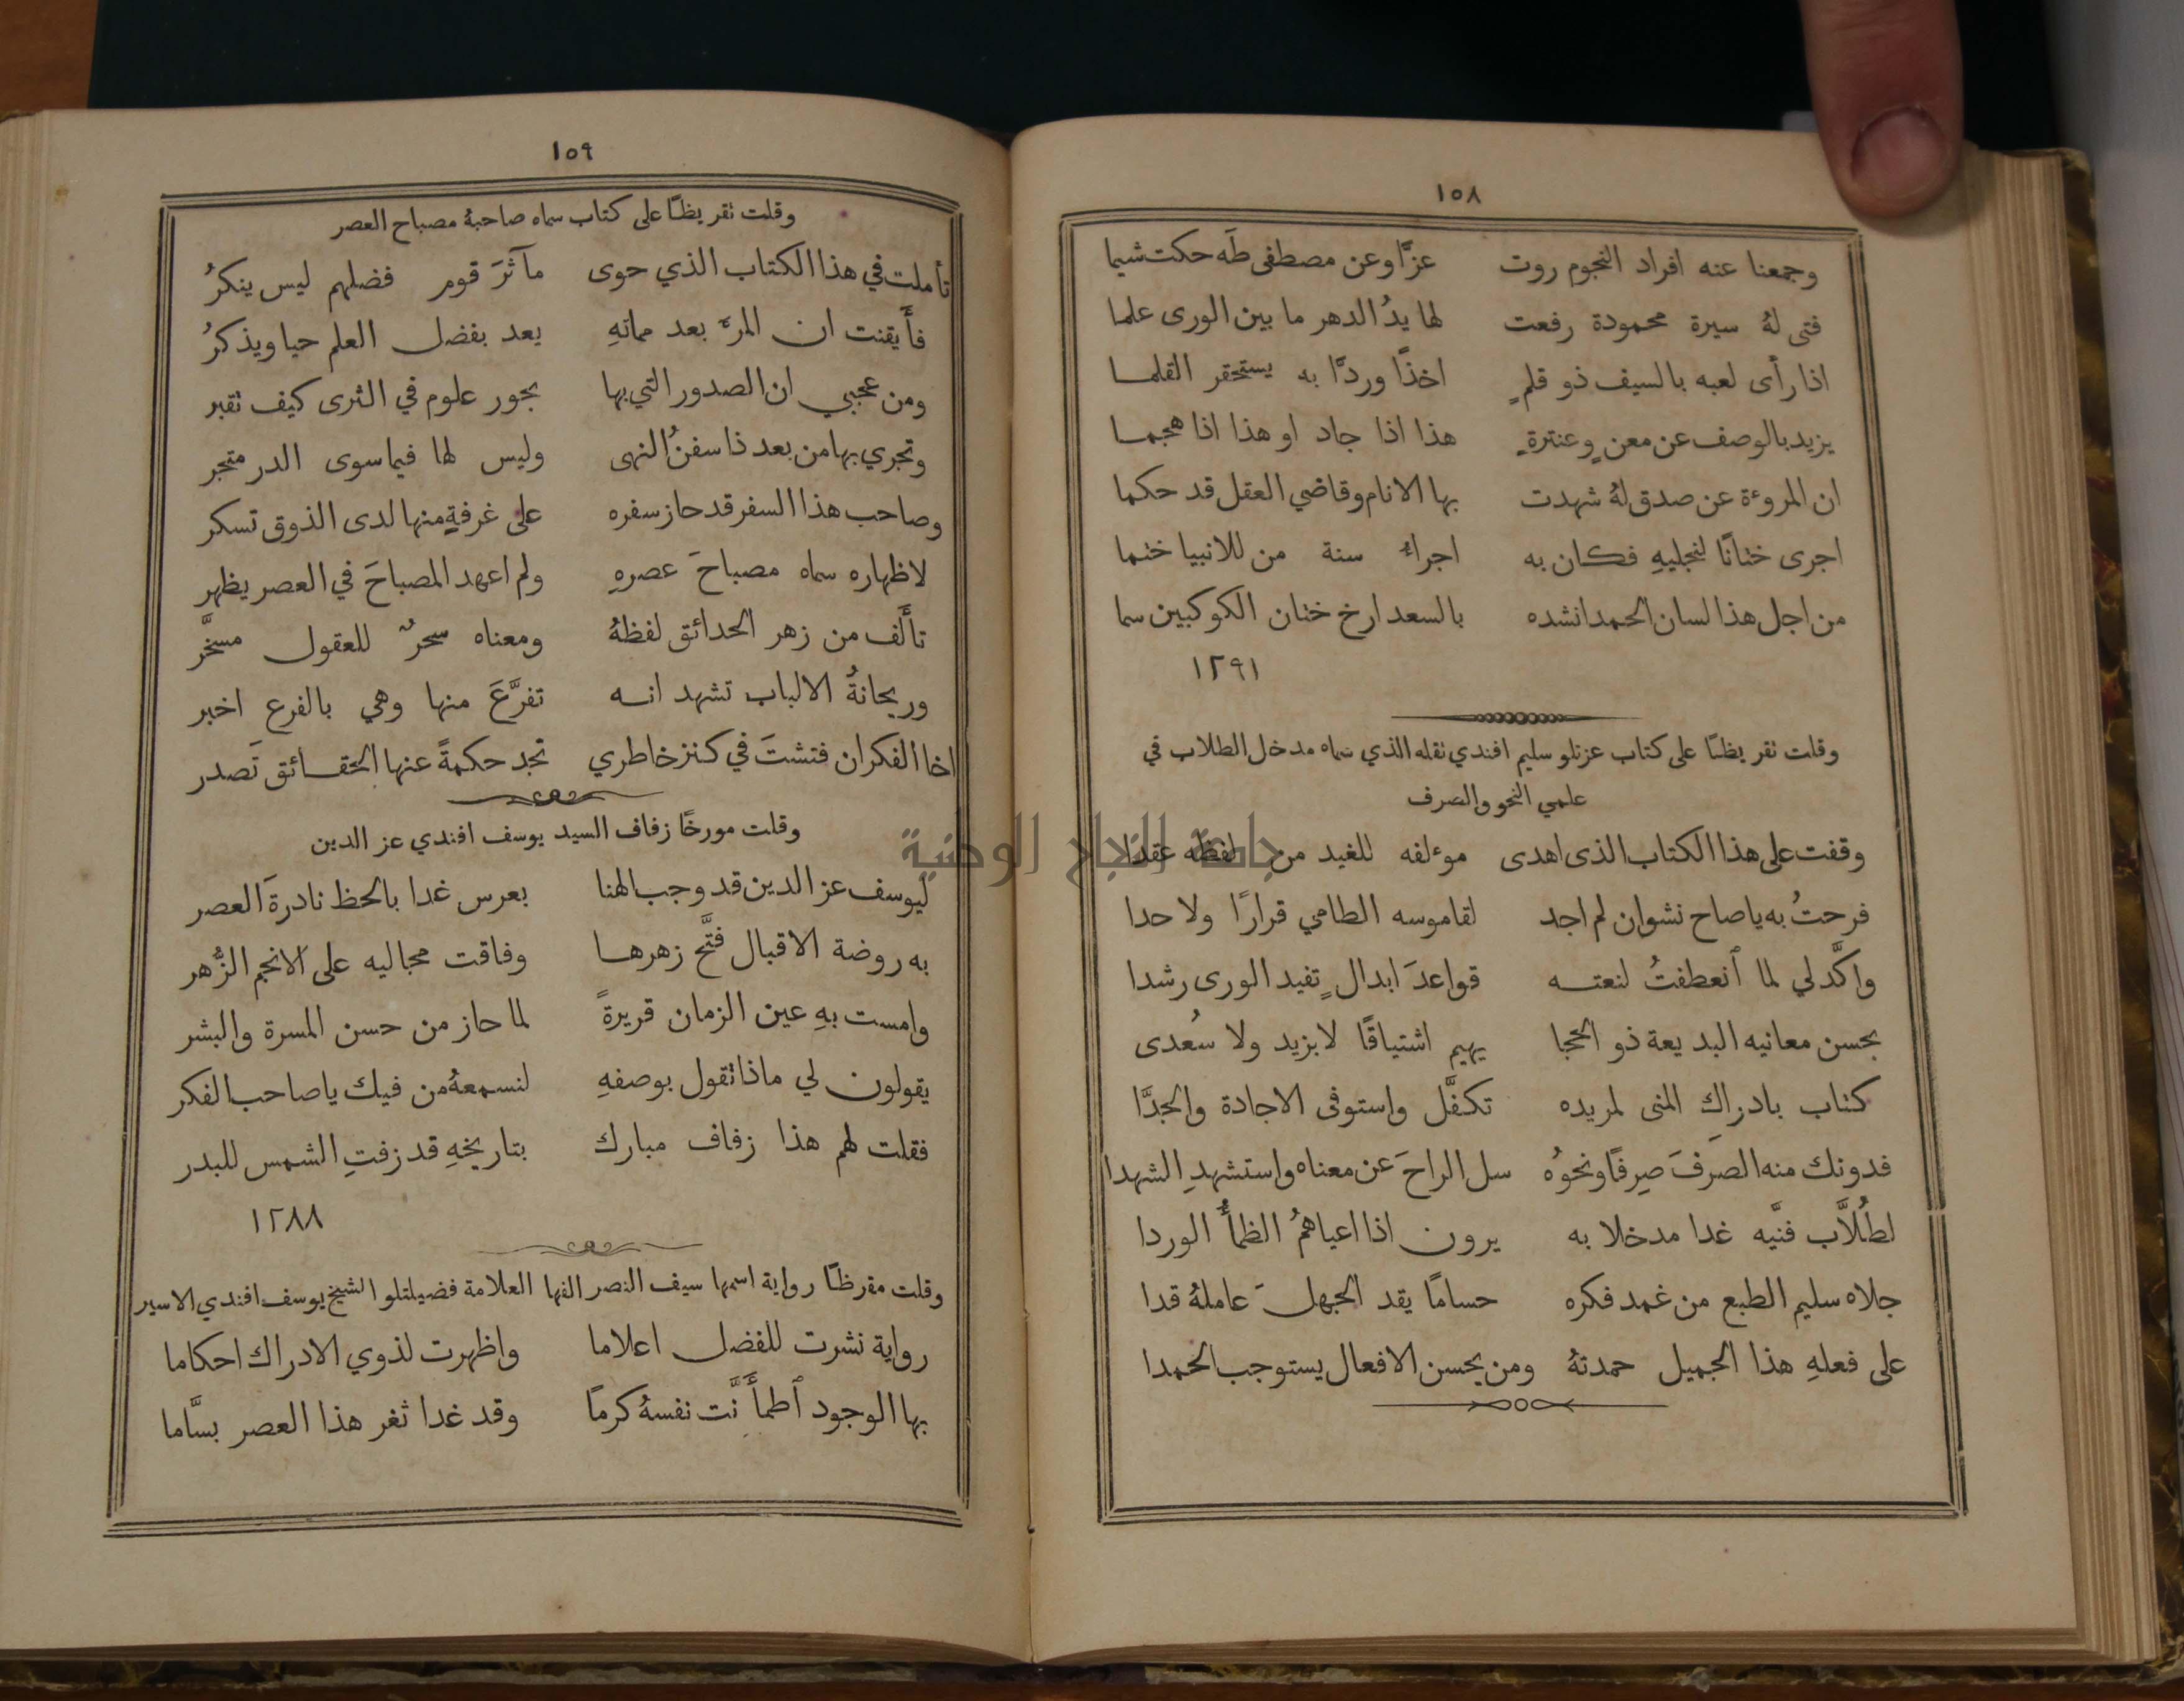 ١٥٨
وجمعنا عنه افراد النجوم روت عزًّا وعن مصطفى طَه حكت شيما
فتى لهُ سيرة محمودة رفعت لها يدُ الدهر ما بين الورى علما
اذا رأى لعبه بالسيف ذو قلمٍ اخذًا وردًّا به يستحقر القلما
يزيد بالوصف عن معنٍ وعنترةٍ هذا اذا جاد او هذا اذا هجما
ان المروءة عن صدق لهُ شهدت بها الانام وقاضي العقل قد حكما
اجرى ختانًا لنجليهِ فكان به اجراءُ سنة من للانبيا ختما
من اجل هذا لسان الحمد انشده بالسعد ارخ ختان الكوكبين سما
١٢٩١
وقلت نقريظًا على كتاب عزتلو سليم افندي نقله الذي سماه مدخل الطلاب في
علمي النحو والصرف
وقفت على هذا الكتاب الذى اهدى موءلفه للغيد من لفظه عقدًا
فرحتُ به ياصاح نشوان لم اجد لقاموسه الطامي قرارًا ولا حدا
واكَّد لي لما ٱنعطفتُ لنعته قواعدَ ابدالٍ تفيد الورى رشدا
بحسن معانيه البديعة ذو الحجا يهيم اشتياقًا لا بزيد ولا سُعدى
كتاب بادراك المنى لمريده تكفَّل واستوفى الاجادة والجدَّا
فدونك منه الصَرفَ صِرفًا ونحوُه سل الراحَ عن معناه واستشهدِ الشهدا
لطُلاَّب فنَّيه غدا مدخلا به يرون اذا اعياهمُ الظمأُ الوردا
جلاه سليم الطبع من غمد فكره حسامًا يقد الجهلَ عاملهُ قدا
على فعلهِ هذا الجميل حمدتهُ ومن يحسن الافعال يستوجب الحمدا
١٥٩
وقلت نقريظًا على كتاب سماه صاحبهُ مصباح العصر
تأملت في هذا الكتاب الذي حوى مآثرَ قوم فضلهم ليس ينكرُ
فأَيقنت ان المرءَ بعد مماتهِ يعد بفضل العلم حيا ويذكرُ
ومن عجبي ان الصدور التي بها بحور علوم في الثرى كيف نقبر
وتجري بها من بعد ذا سفنُ النهى وليس لها فيما سوى الدر متجر
وصاحب هذا السفر قد حاز سفره على غرفةٍ منها لدى الذوق تسكر
لاظهاره سماه مصباحَ عصرهِ ولم اعهد المصباحَ في العصر يظهر
تأَلَّف من زهر الحدائق لفظهُ ومعناه سحرٌ للعقول مسخَّر
وريحانةُ الالباب تشهد انه تفرَّعَ منها وهي بالفرع اخبر
اخا الفكر ان فتشتَ في كنز خاطري تجد حكمةً عنها الحقائق تَصدر
وقلت مورخًا زفاف السيد يوسف افندي عز الدين
ليوسف عز الدين قد وجب الهنا بعرس غدا بالحظ نادرةَ العصر
به روضة الاقبال فتَّح زهرها وفاقت مجاليه على الانجم الزُّهر
وامست بهِ عين الزمان قريرةً لما حاز من حسن المسرة والبشر
يقولون لي ماذا نقول بوصفهِ لنسمعهُ من فيك ياصاحب الفكر
فقلت لهم هذا زفاف مبارك بتاريخهِ قد زفتِ الشمس للبدر
١٢٨٨
وقلت مقرظًا رواية اسمها سيف النصر الفها العلامة فضيلتلو الشيخ يوسف افندي الاسير
رواية نشرت للفضل اعلاما واظهرت لذوي الادراك احكاما
بها الوجود ٱطمأَنَّت نفسهُ كرمًا وقد غدا ثغر هذا العصر بسَّاما
جامعة النجاح الوطنية